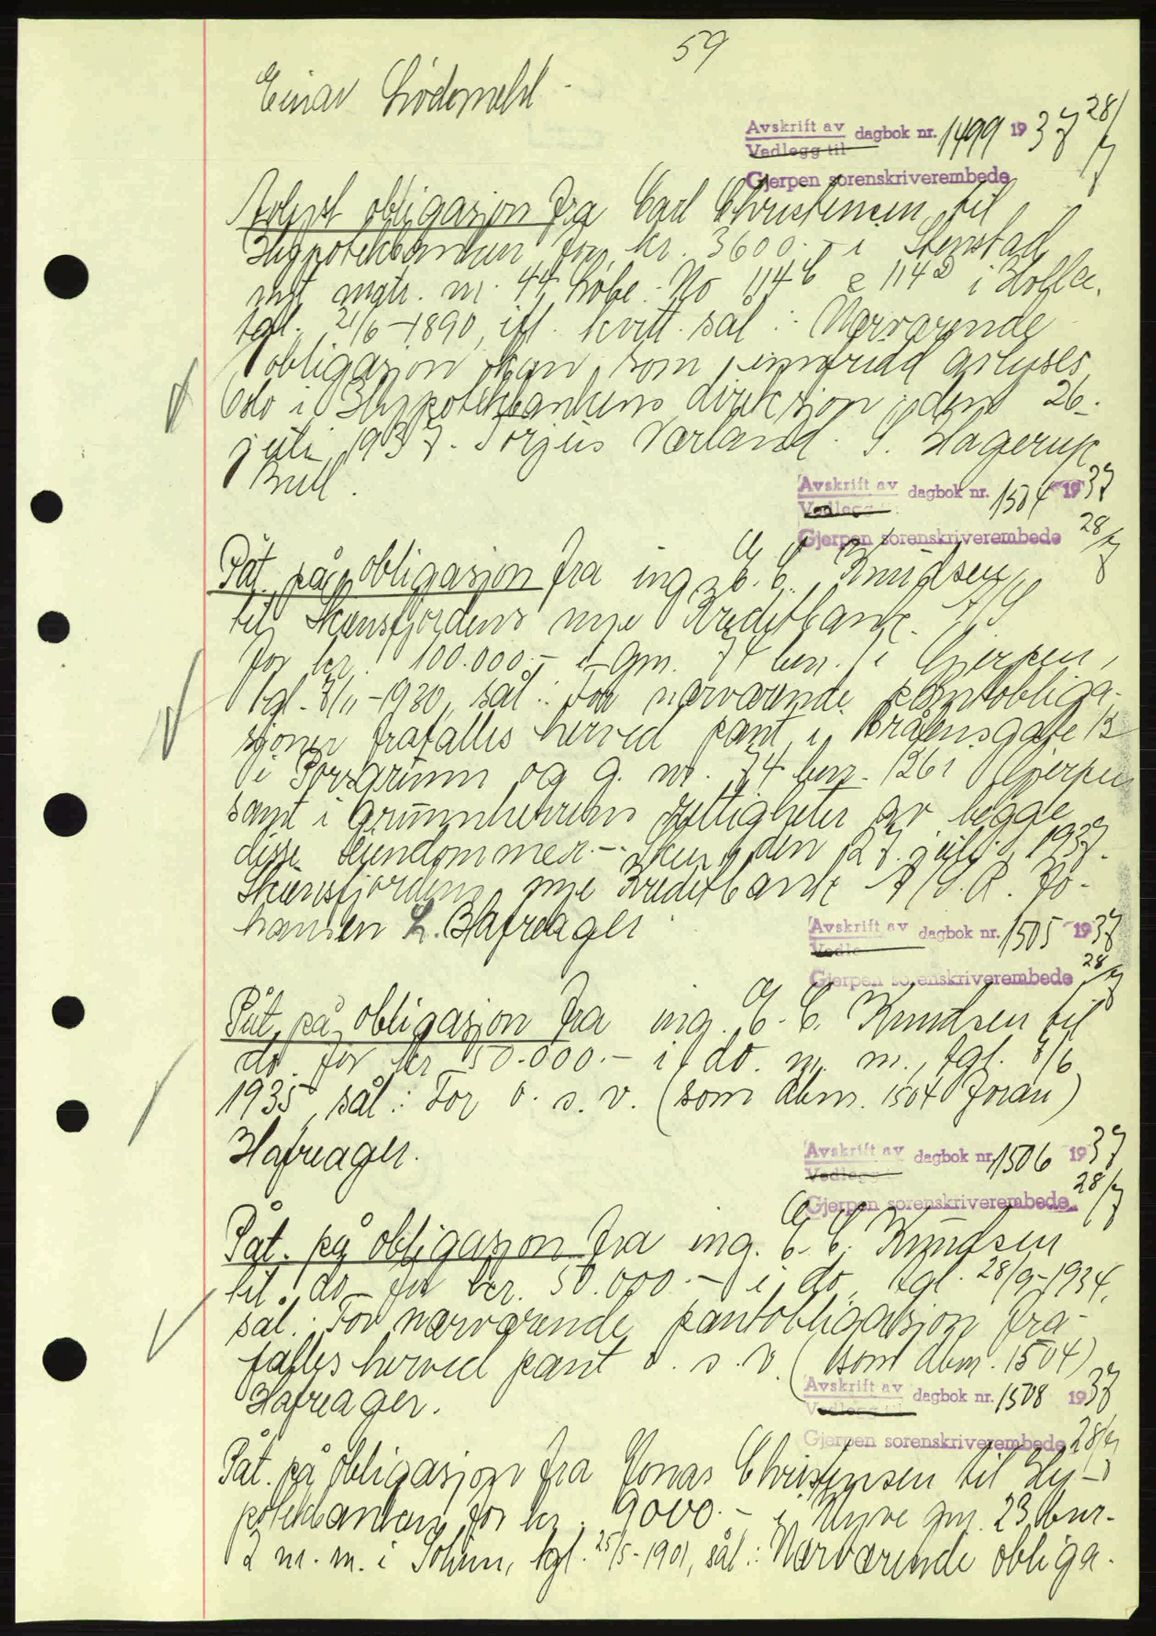 59
Einar
Avskrift av dagbok nr. 1499 1937 28/7
Vedlegg til
Gjerpen sorenskriverembede
obligasjon fra Carl Christensen til
Hypotekbanken for kr. 3600.- i Stenstad
mtr. nr. 44, løbe No 114 b & 114 d i Holla.
tgl. 21/6-1890, kvitt. sål.: Nærværende
obligasjon kan som innfridd avlyses
Oslo i Hypotekbankens direksjon den 26.
juli 1937. Torjus Værland. S. Hagerup
Bull.
Avskrift av dagbok nr. 1504 1937
Vedlegg
Gjerpen sorenskriverembede 28/7
Påt. på obligasjon fra ing. C. C. Knudsen
til Skiensfjordens nye Kreditbank A/S
for kr. 100.000.- i gnr. 74 bnr. 1 i Gjerpen,
tgl. 3/11-1930, sål.: For nærværende pantobliga-
sjoner frafalles herved pant i gate 13
i Porsgrunn og g. nr. 74 bnr. 126 i Gjerpen
samt i grunnherrens rettigheter av begge
disse eiendommer.- Skien, den 27. juli 1937.
Skiensfjordens nye Kreditbank A/S. R. Jo-
hansen L. Hafreager
Avskrift av dagbok nr. 1505 1937
Vedle
Gjerpen sorenskriverembede 28/7
Påt. på obligasjon fra ing. C. C. Knudsen til
do. for kr 50.000.- i do. m. m., tgl. 8/6
1935, sål.: For o. s. v. (som dbnr. 1504 foran)
Hafreager.
Avskrift av dagbok nr. 1506 1937
Vedlegg
Gjerpen sorenskriverembede 28/7
Påt. på obligasjon fra ing. C. C. Knudsen
til do for kr. 50.000.- i do, tgl. 28/9-1934,
sål.: For nærværende pantobligasjon fra-
falles herved pant o. s. v. (som dbnr. 1504)
Hafreager.
Avskrift av dagbok nr. 1508 1937
Vedlegg til
Gjerpen sorenskriverembede 28/7
Påt. på obligasjon fra Jonas Christensen til Hy-
potekbanken for kr. 9000.- i gnr. 23 bnr.
2 m. m. i Solum, tgl. 25/5-1901, sål.: Nærværende obliga-